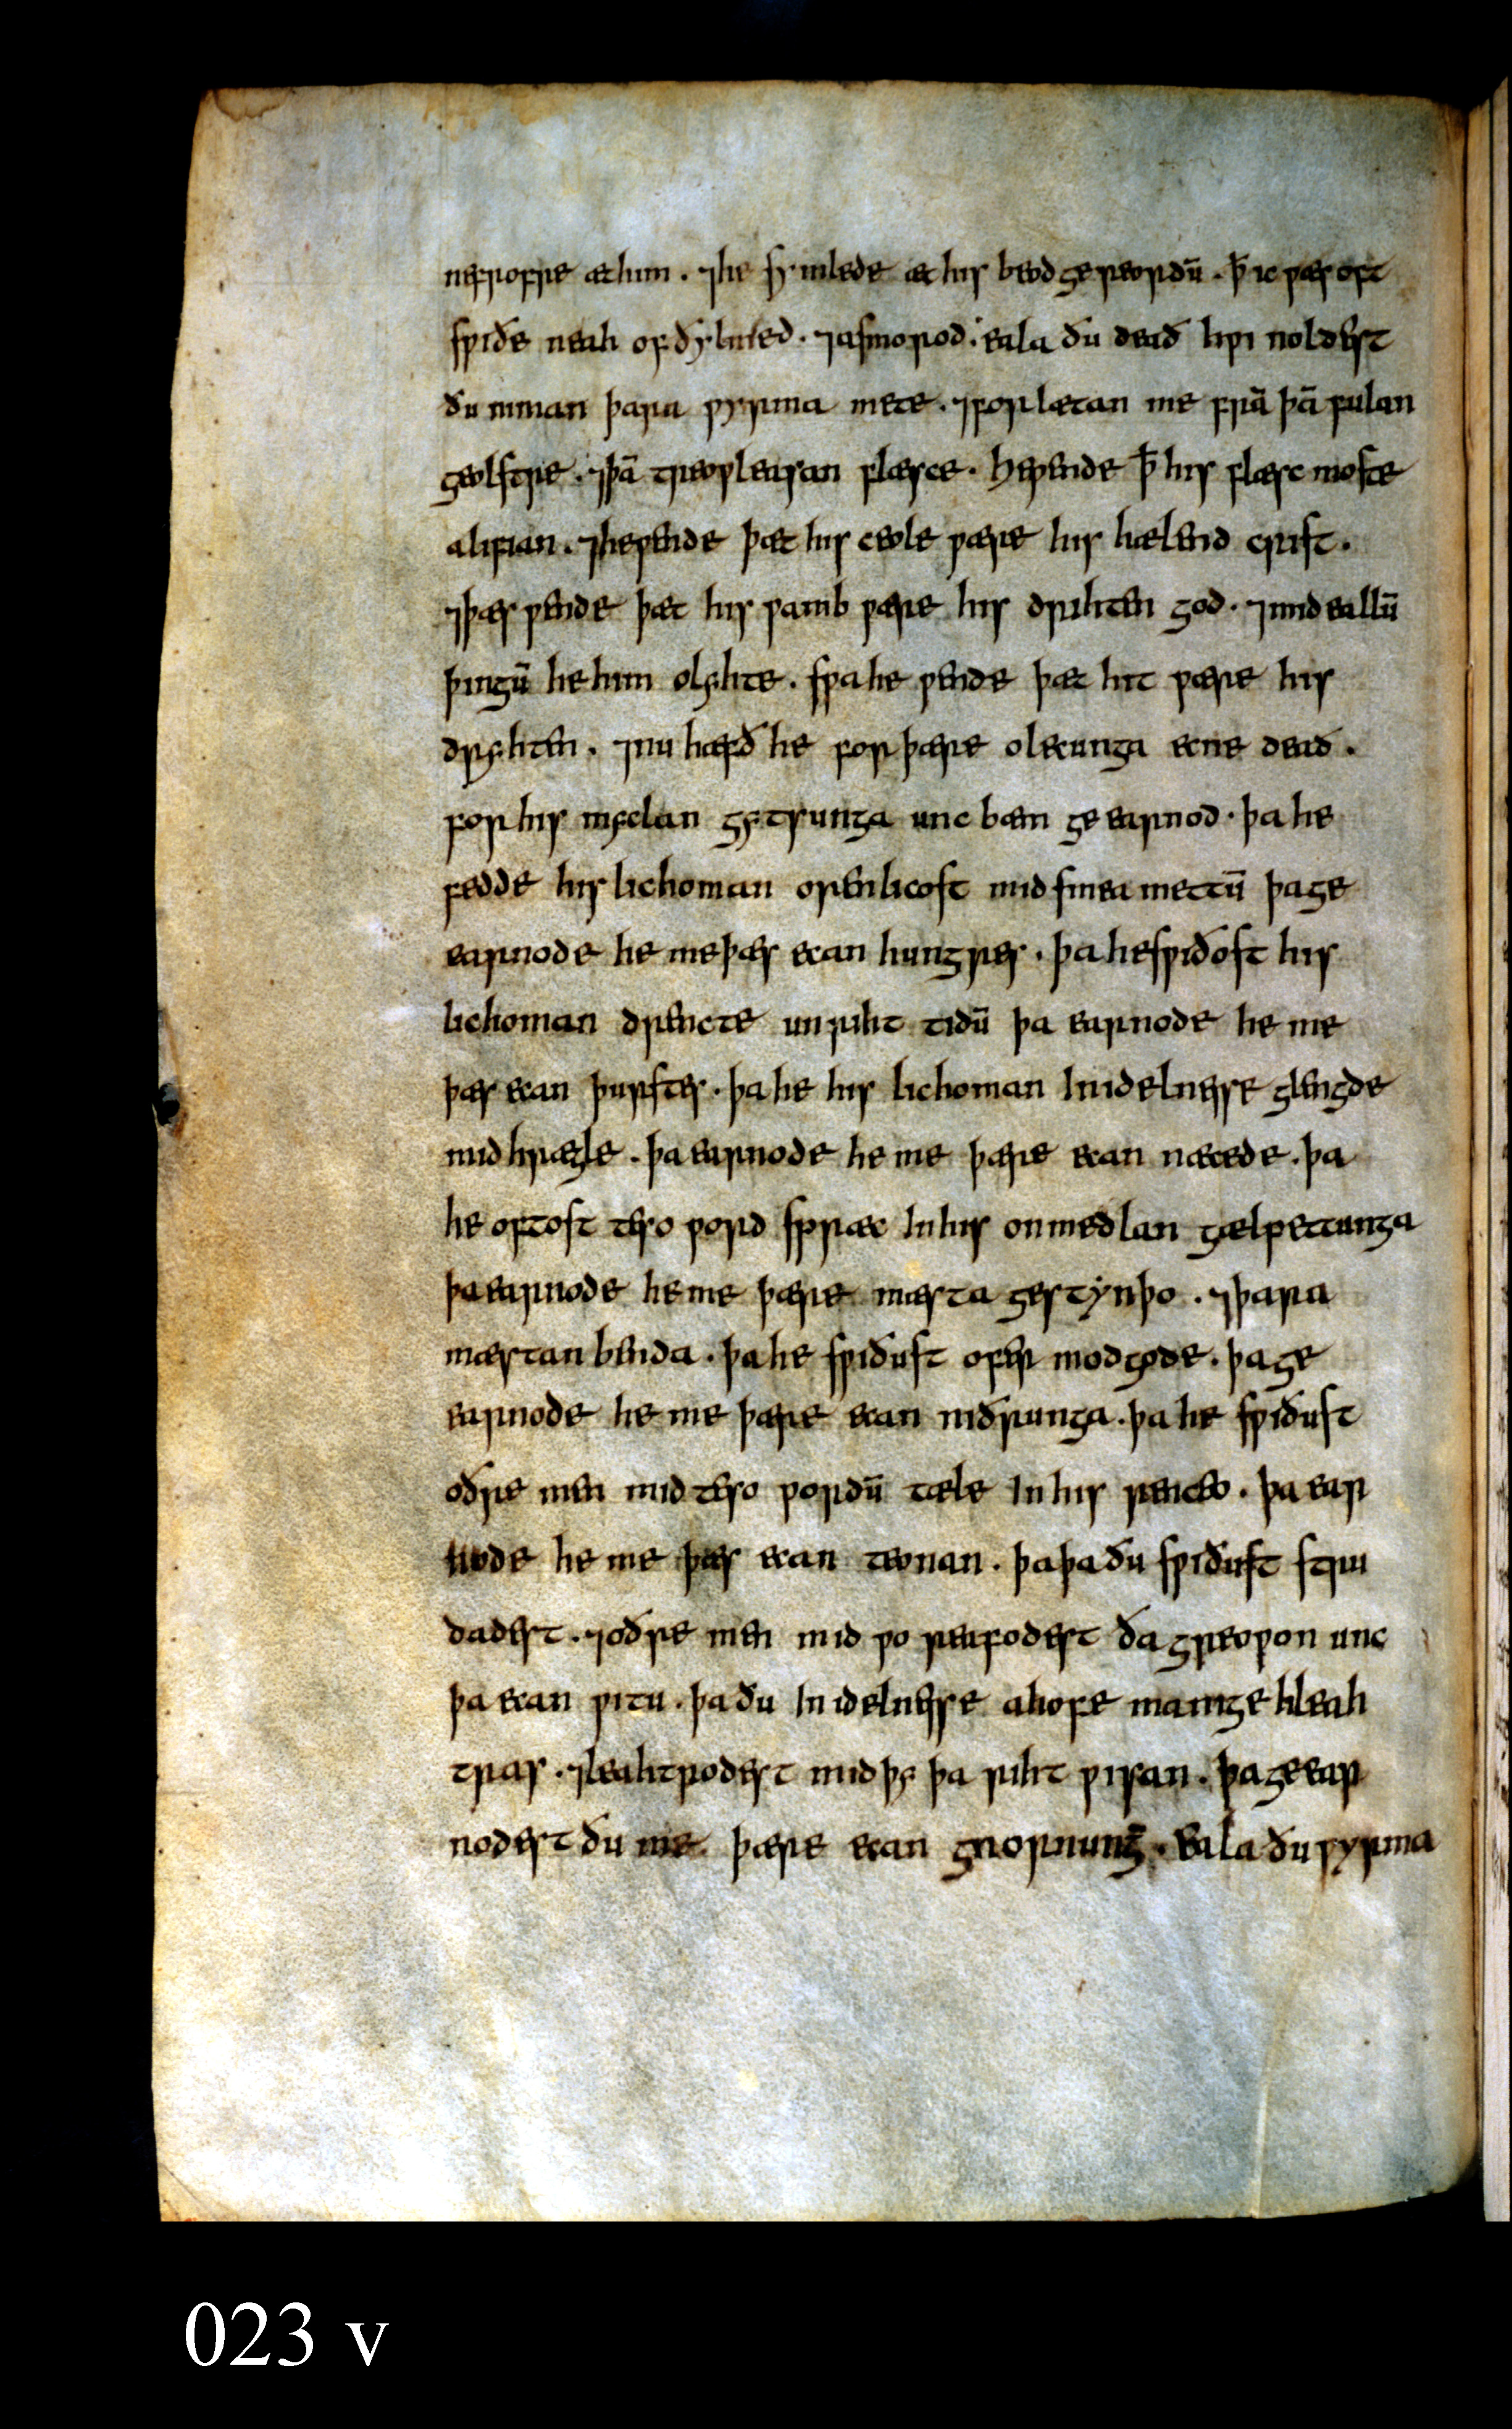 nefrofre æt him . ⁊he sẏmlede æt his beodgereordū . þ̄ ic ƿæs oft
sƿiðe neah ofðẏsmed . ⁊asmorod . eala ðu deað hƿi noldest
ðu niman þara ƿyrma mete . ⁊forlætan me frā þā fulan
geolstre . ⁊þā treoƿleasan flæsce . heƿende þ̄ his flæsc moste
alifian . ⁊heƿende þæt his ceole ƿære his hælend crist .
⁊þæs ƿende þæt his ƿamb ƿære his drihten god . ⁊mid eallū
þingū he him olęhte . sƿa he ƿende þæt hit ƿære his
dryhten . ⁊nu hæfð he for þære olecunga ecne deað .
for his myclan gytsunga unc bæm geearnod . þa he
fedde his lichoman orenlicost mid smea mettū þa ge
earnode he me þæs ecan hungres . þa he sƿiðost his
lichoman drencte unriht tidū þa earnode he me
þæs ecan þurstes . þa he his lichoman In idelnesse glengde
mid hrægle . þa earnode he me þære ecan næcede . þa
he oftost teso ƿord spræc In his onmedlan gælpettunga
þa earnode he me þære mæsta gestẏnþo . ⁊þara
mæstan benda . þa he sƿiðust ofer modgode . þa ge
earnode he me þære ecan niðrunga . þa he sƿiðust
oðre men mid teso ƿordū tæle In his renceo . þa ear
node he me þæs ecan teonan . þa þa ðu sƿiðust stru
dadest . ⁊oðre men mid ƿo reafodest ða greoƿon unc
þa ecan ƿitu . þa ðu In idelnesse ahofe mænige hleah
tras . ⁊leahtrodest mid þy þa riht ƿisan . þa geear
nodest ðu me þære ecan gnornung̅ . Eala ðu ƿyrma
023 v